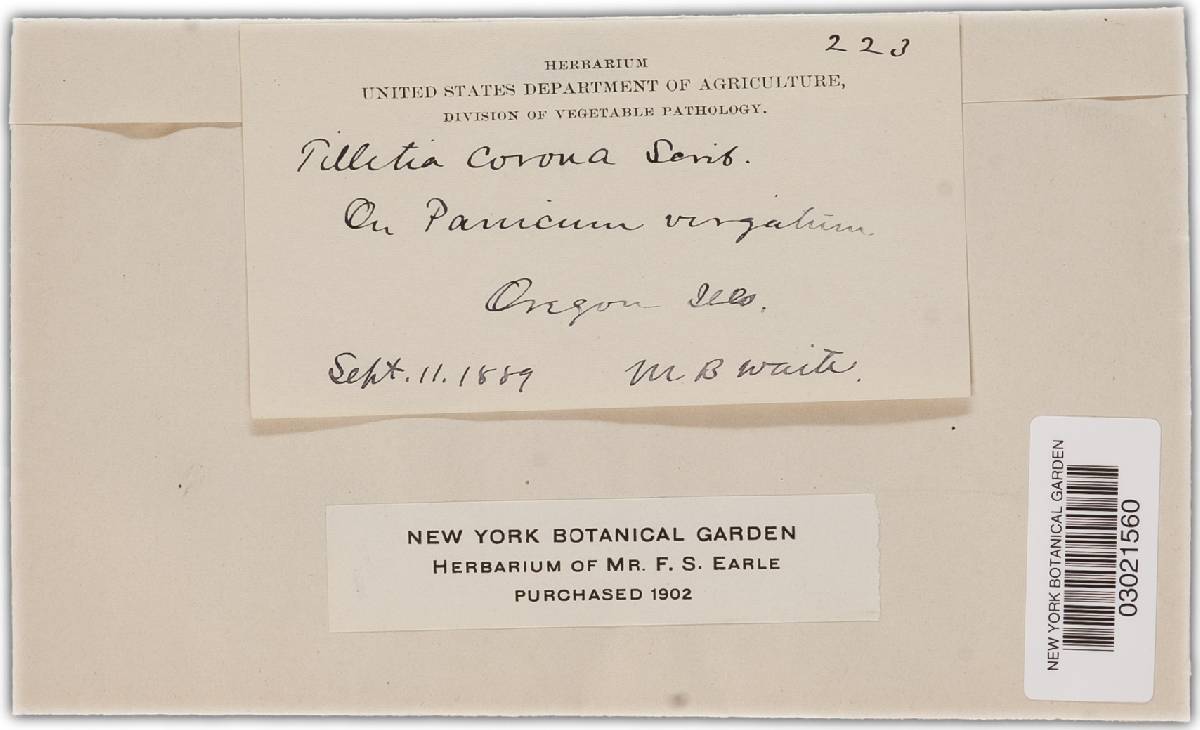 223
HERBARIUM
UNITED STATES DEPARTMENT OF AGRICULTURE,
DIVISION OF VEGETABLE PATHOLOGY.
Tilletia corona Scrib.
On Panicum virgatum
Oregon Ills.
Sept. 11. 1889 M B Waite.
NEW YORK BOTANICAL GARDEN
HERBARIUM OF MR. F. S. EARLE
PURCHASED 1902
NEW YORK BOTANICAL GARDEN
03021560